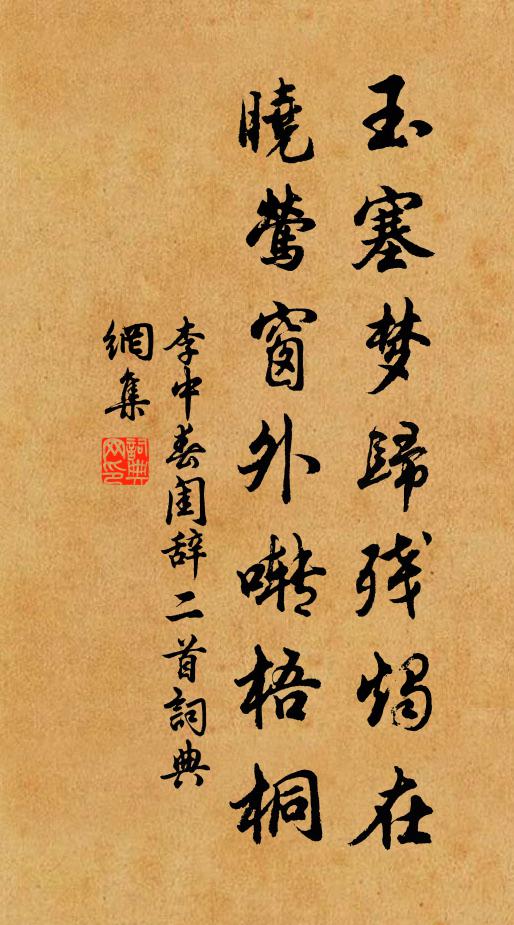 玉塞梦歸残燭在
曉莺窗外啭梧桐
李中春闺辞二首詞典
網集
詞典网印